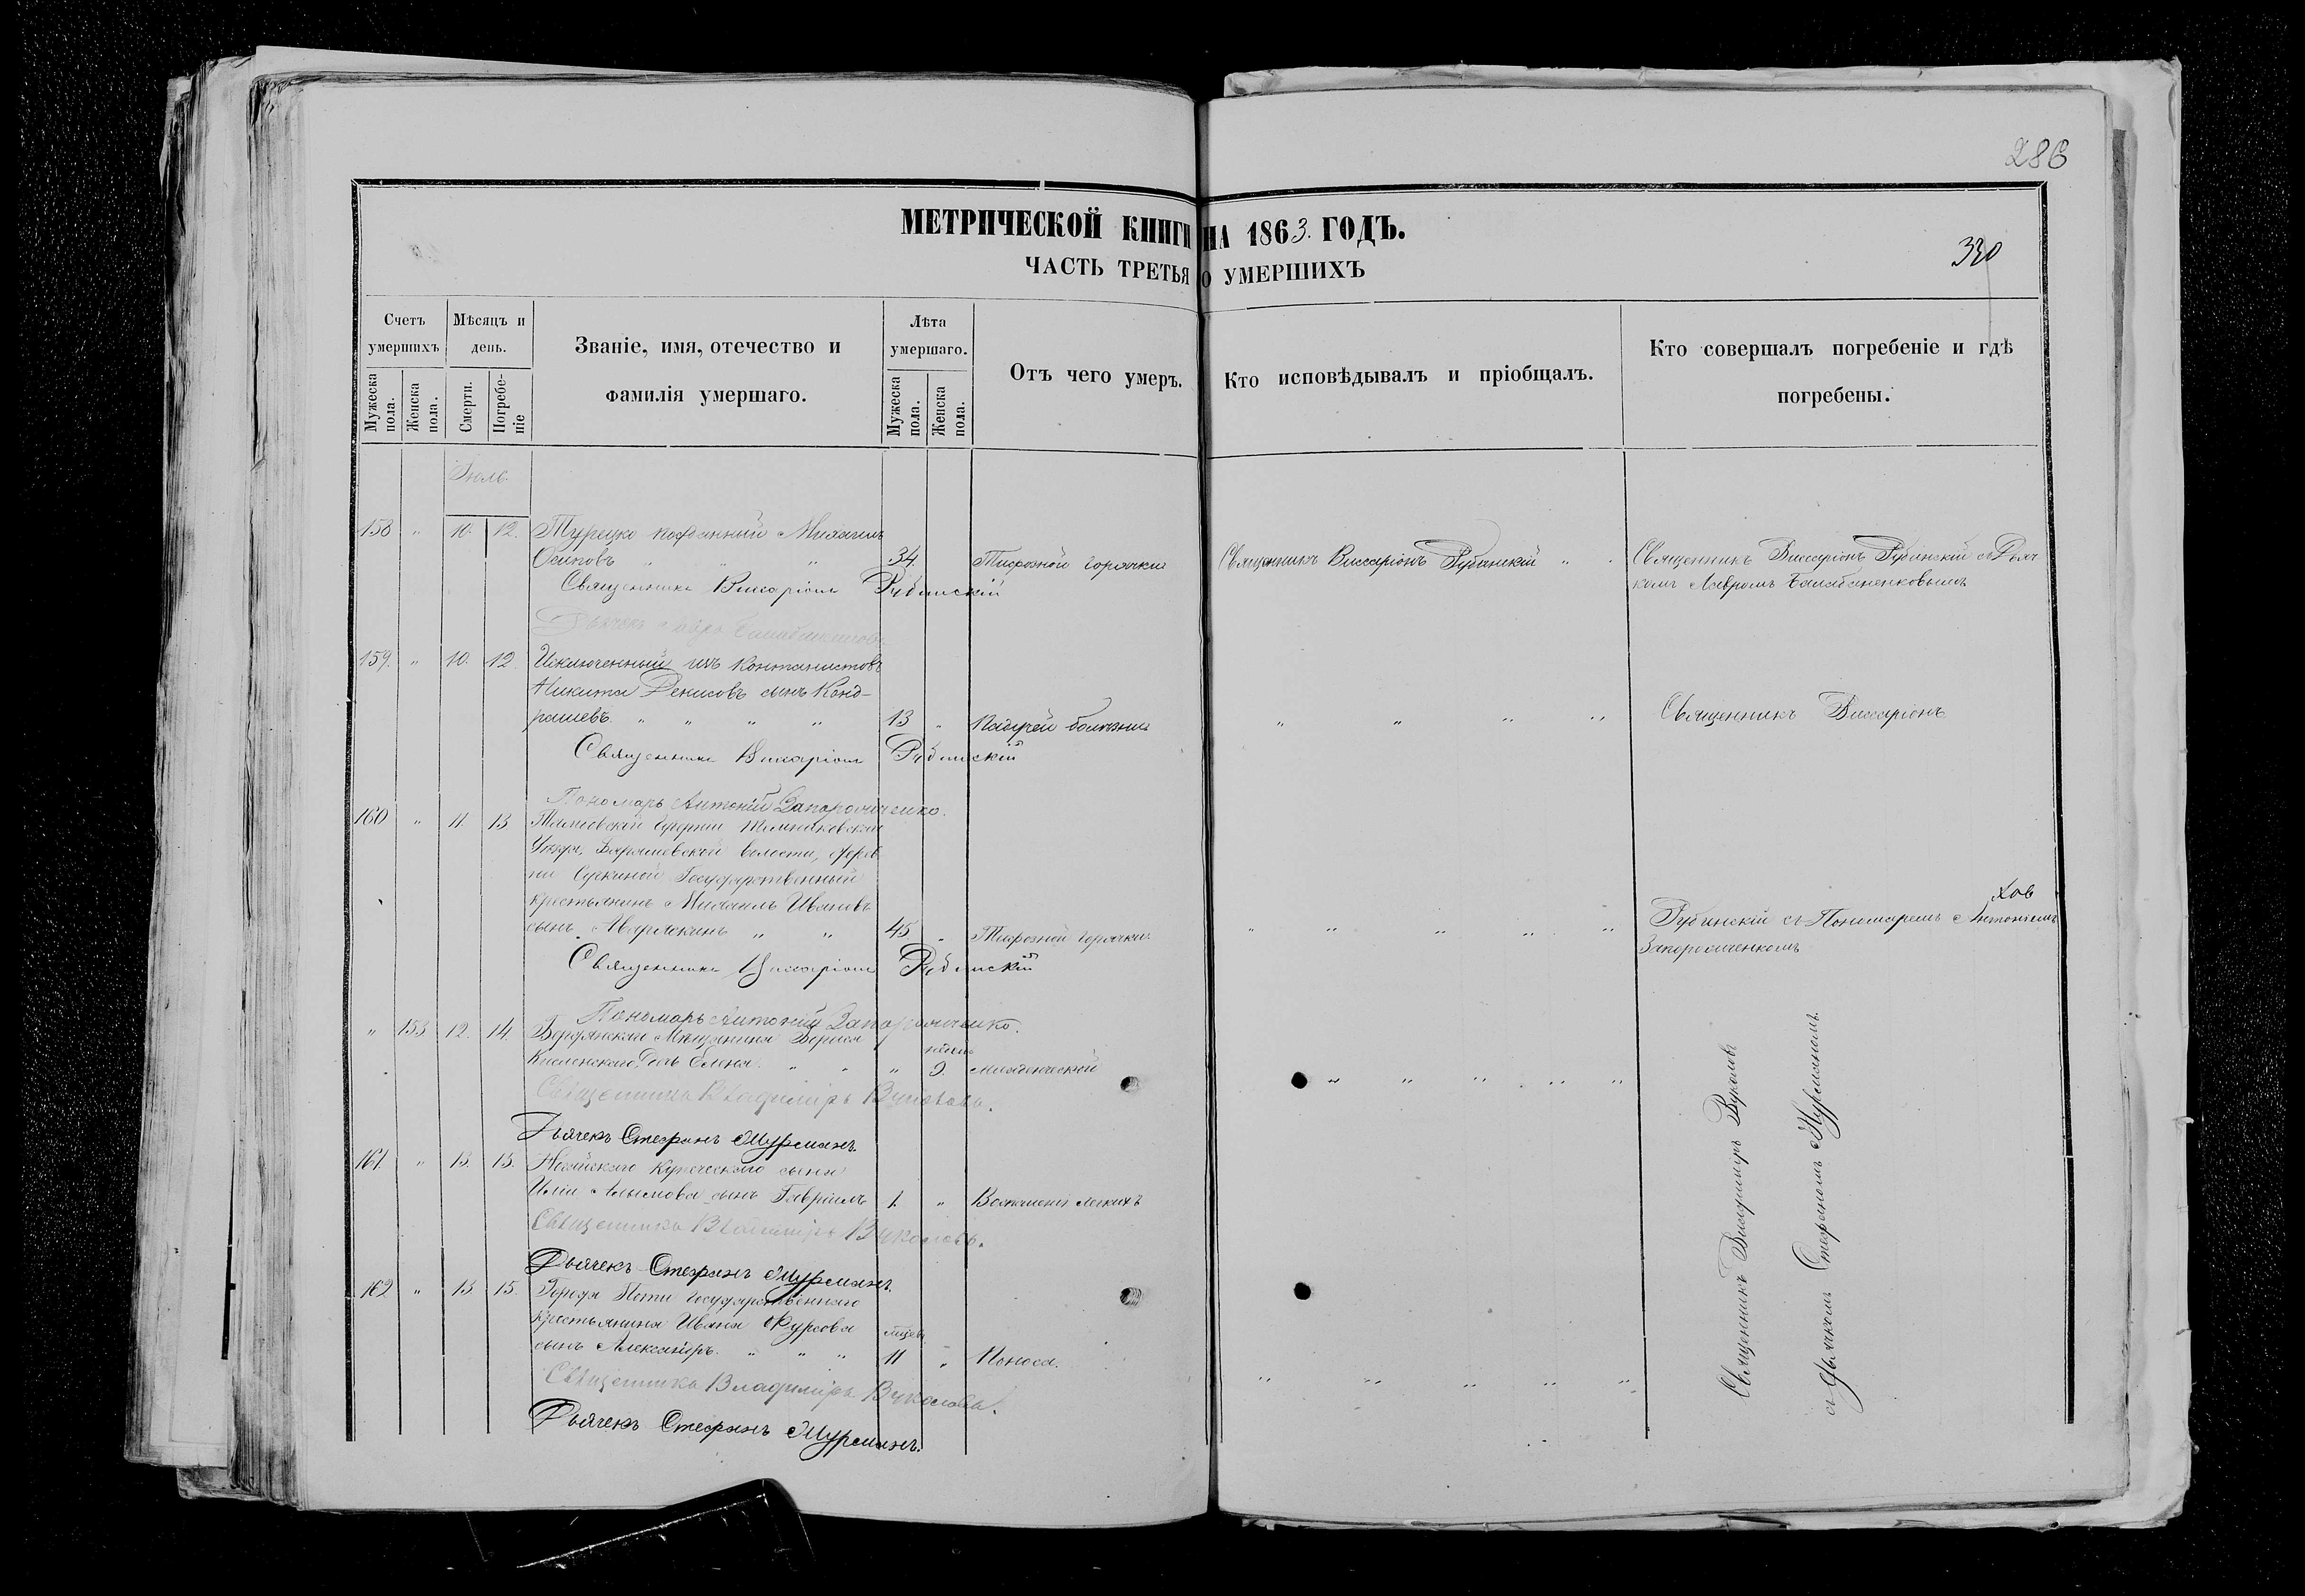 286
МЕТРИЧЕСКОЙ КНИГИ НА 1863. ГОДЪ.
330
ЧАСТЬ ТРЕТЬЯ О УМЕРШИХЪ
Счетъ умершихъ
Мѣсяцъ и день.
Званіе, имя, отечество и фамилія умершаго.
Лѣта умершаго.
Отъ чего умеръ.
Кто исповѣдывалъ и пріобщалъ.
Кто совершалъ погребеніе и гдѣ погребены.
Мужеска пола.
Женска пола.
Смерти.
Погребеніе
Мужеска пола.
Женска пола.
Іюль.
158 " 10. 12. Турецко подданный Михаилъ
Осиповъ " " " 34. Тифозной горячки Священникъ Виссаріонъ Рубанскій " " Священникъ Виссаріонъ Рубинскій съ Дьяч
комъ Лавромъ
Священникъ Виссаріонъ Рубинскій
Дьячекъ Лавръ
159. " 10. 12. Исключенный изъ кантонистовъ
Никита Денисовъ сынъ Конд-
рашевъ. " " " " 13 " Падучей болѣзни " " " " Священникъ Виссаріонъ
Священникъ Виссаріонъ Рубинскій
Пономарь Антоній Запорожченко.
160 " 11. 13 Тамбовской Губерніи Темниковскаго
Уѣзда, волости, дерев
ни Государственный
крестьянинъ Михаилъ Ивановъ
сынъ " " 45 " Тифозной горячки. " " " " " Рубинскій съ Пономаремъ Антоніемъ
Запорожченкомъ
Священникъ Виссаріонъ Рубинскій
Пономарь Антоній Запорожченко.
" 153 12. 14. Бердянскаго Мѣщанина Бориса
Дочь Елена. " " " 9. Младенческой " " " " "
Священникъ Владиміръ Вуколовъ.
Дьячекъ Стефанъ Мурсманъ.
161. " 13. 15. Ногайскаго купеческаго сына
Иліи сынъ Гавріилъ 1. " Воспаленія легкихъ
Священникъ Владиміръ Вуколовъ.
Дьячекъ Стефанъ Мурсманъ.
162 " 13 15. Города Государственнаго
крестьянина Ивана Фурсова
сынъ Александръ. " " " 11 " Поноса. " " " " "
Священникъ Владиміръ Вуколовъ.
Дьячекъ Стефанъ Мурсманъ.
Священникъ Владиміръ Вуколовъ
съ Дьячкомъ Стефаномъ Мурсманомъ.